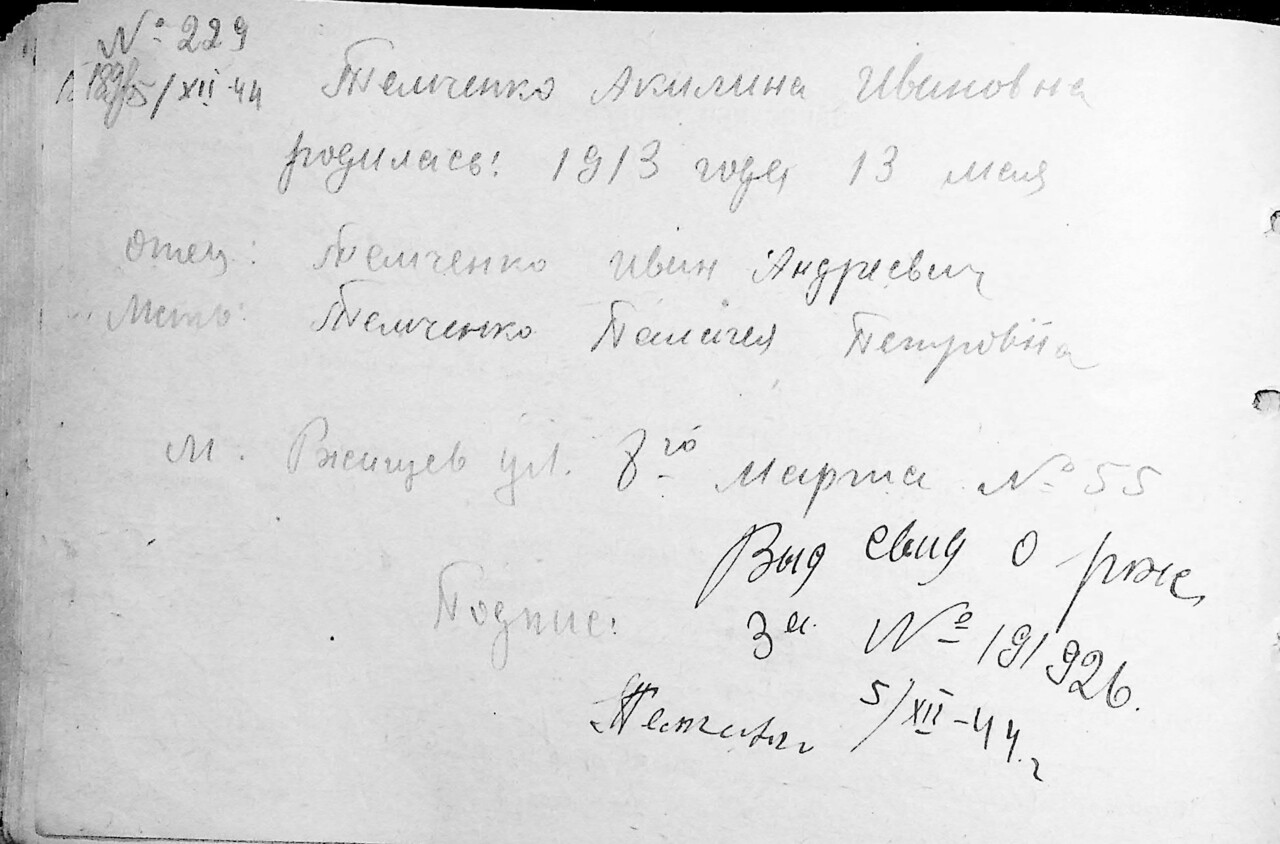 № 229
5/XII-44
Темченко Акилина Ивановна
родилась: 1913 года 13 мая
Отец: Темченко Иван Андреевич
Мать: Темченко Палагея Петровна
М. Ржищев ул. 8го марта № 55
Выд свид о рже
за № 191926.
Подпис:
5/XII-44 г